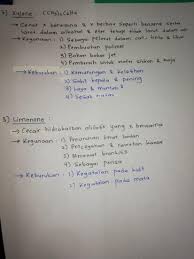 2) Xylene : (CH3)2C6H4
→ Cecair x berwarna & x berbau seperti benzena serta
larut dalam alkohol & eter tetapi tidak larut dalam air
→ Kegunaan : 1) Sebagai pelarut dalam cat,
2) Pembuatan polimer
3) Bahan bakar jet
4) Pembersih untuk
→ Keburukan : 1) Kemurungan & keletihan
2) Sakit kepala & pening
3) Loya & muntah
4) Sesak nafas
3) Limonene :
→ Cecair hidrokarbon alifatik yang x berwarna
→ Kegunaan : 1) Penurunan berat badan
2) Pencegahan & rawatan kanser
3) Merawat bronkitis
4) Sebagai perisa
→ Keburukan : 1) Kegatalan pada kulit
2) Kegatalan pada mata